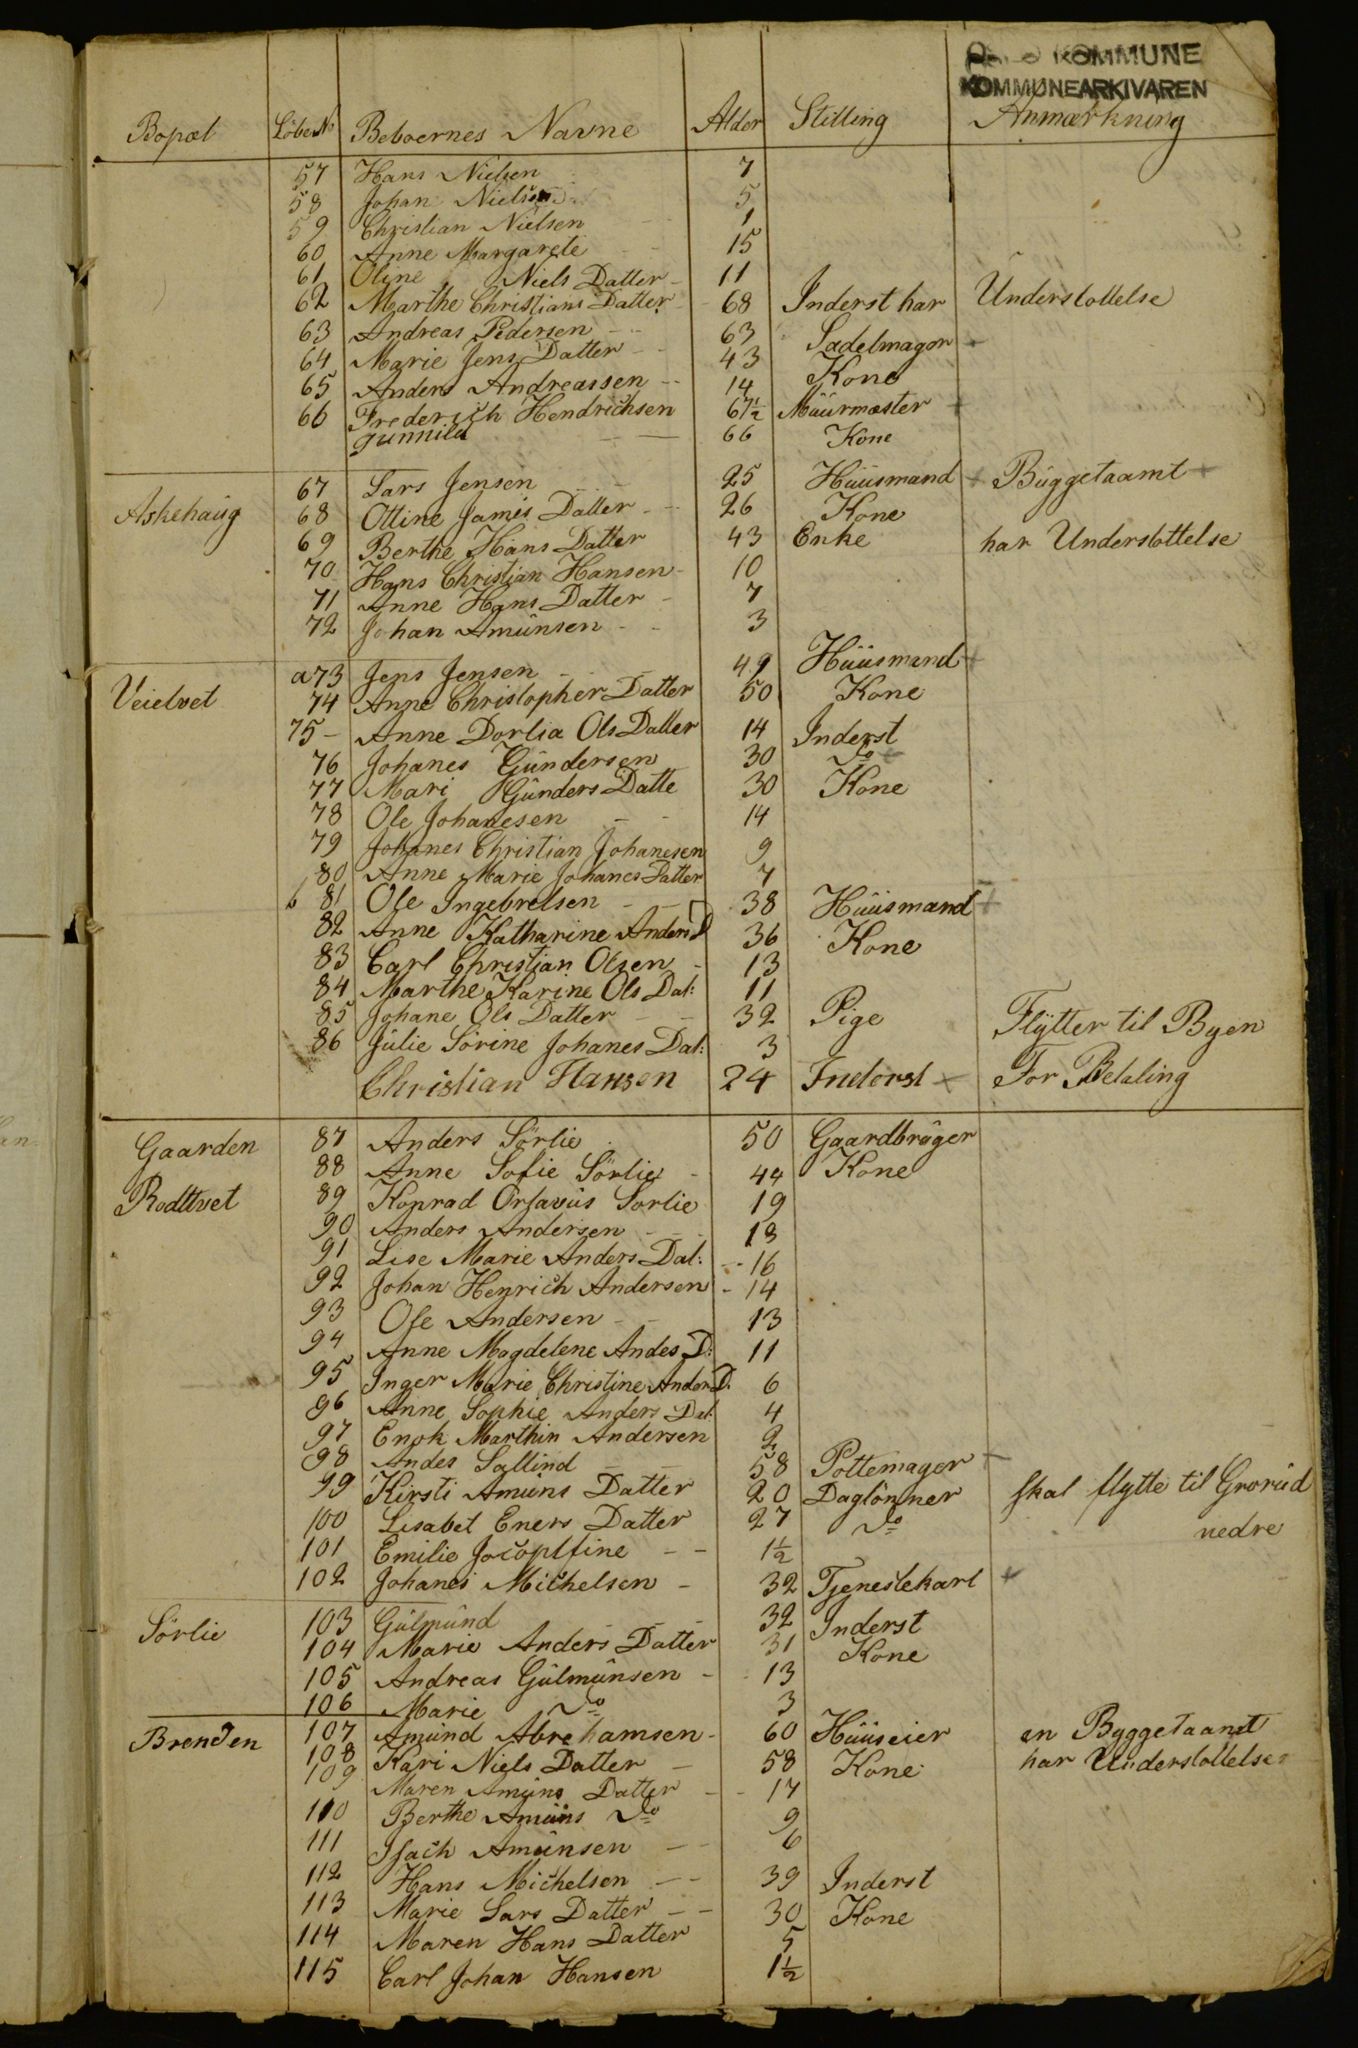 KOMMUNE
KOMMUNEARKIVAREN
Bopæl Löbe No Beboernes Navne Alder Stilling Anmærkning
57 Hans Nielsen 7
58 Johan Nielsen 5
59 Christian Nielsen 1
60 Anne Margarete 15
61 Oline Niels Datter 11
62 Marthe Christians Datter 68 Inderst har Understottelse
63 Andreas Pedersen 63 Sadelmager +
64 Marie Jens Datter 43 Kone
65 Anders Andreassen 14
66 Frederich Hendrichsen 67½ Müürmæster +
Gunnild 66 Kone
67 Lars Jensen 25 Hüüsmand + Büggetaamt +
Askehaüg 68 Ottine James Datter 26 Kone
69 Berthe Hans Datter 43 Enke har Understottelse
70 Hans Christian Hansen 10
71 Anne Hans Datter 7
72 Johan Amünsen 3
a 73 Jens Jensen 49 Hüüsmand +
Veielvet 74 Anne Christopher Datter 50 Kone
75 - Anne Dorlia Ols Datter 14 Inderst
76 Johanes Gündersen 30 Do +
77 Mari Günders Datte 30 Kone
78 Ole Johanesen 14
79 Johanes Christian Johanesen 9
80 Anne Marie Johanes Datter 7
b 81 Ole Ingebretsen 38 Hüüsmand +
82 Anne Katharine Anders D 36 Kone
83 Carl Christian Olsen 13
84 Marthe Karine Ols Dat: 11
85 Johane Ols Datter 32 Pige Flÿtter til Byen
86 Jülie Sörine Johanes Dat: 3
Christian Hansen 24 Inderst + For Betaling
Gaarden 87 Anders Sörlie 50 Gaardbrüger
88 Anne Sofie Sörlie 44 Kone
Rodttvet 89 Konrad Orfavüs Sorlie 19
90 Anders Andersen 18
91 Lise Marie Anders Dat: 16
92 Johan Henrich Andersen 14
93 Ole Andersen 13
94 Anne Magdelene Andes D: 11
95 Inger Marie Christine Ander D: 6
96 Anne Sophie Anders Dat. 4
97 Enok Marthin Andersen 2
98 Andes Sallind 58 Pottemager +
99 Kirsti Amüns Datter 20 Daglönner skal flytte til Grorüd
100 Lisabet Eners Datter 27 Do nedre
101 Emilie 1½
102 Johanes Michelsen 32 Tjenestekarl +
Sörlie 103 Gülmünd 32 Inderst
104 Marie Anders Datter 31 Kone
105 Andreas Gülmünsen 13
106 Marie Do 3
Brenden 107 Amünd Abrehamsen 60 Hüüseier en Byggetaamt
108 Kari Niels Datter 58 Kone har Understottelse
109 Maren Amüns Datter 17
110 Berthe Amüns Do 9
111 Isach Amünsen 6
112 Hans Michelsen 39 Inderst
113 Marie Lars Datter 30 Kone
114 Maren Hans Datter 5
115 Carl Johan Hansen 1½